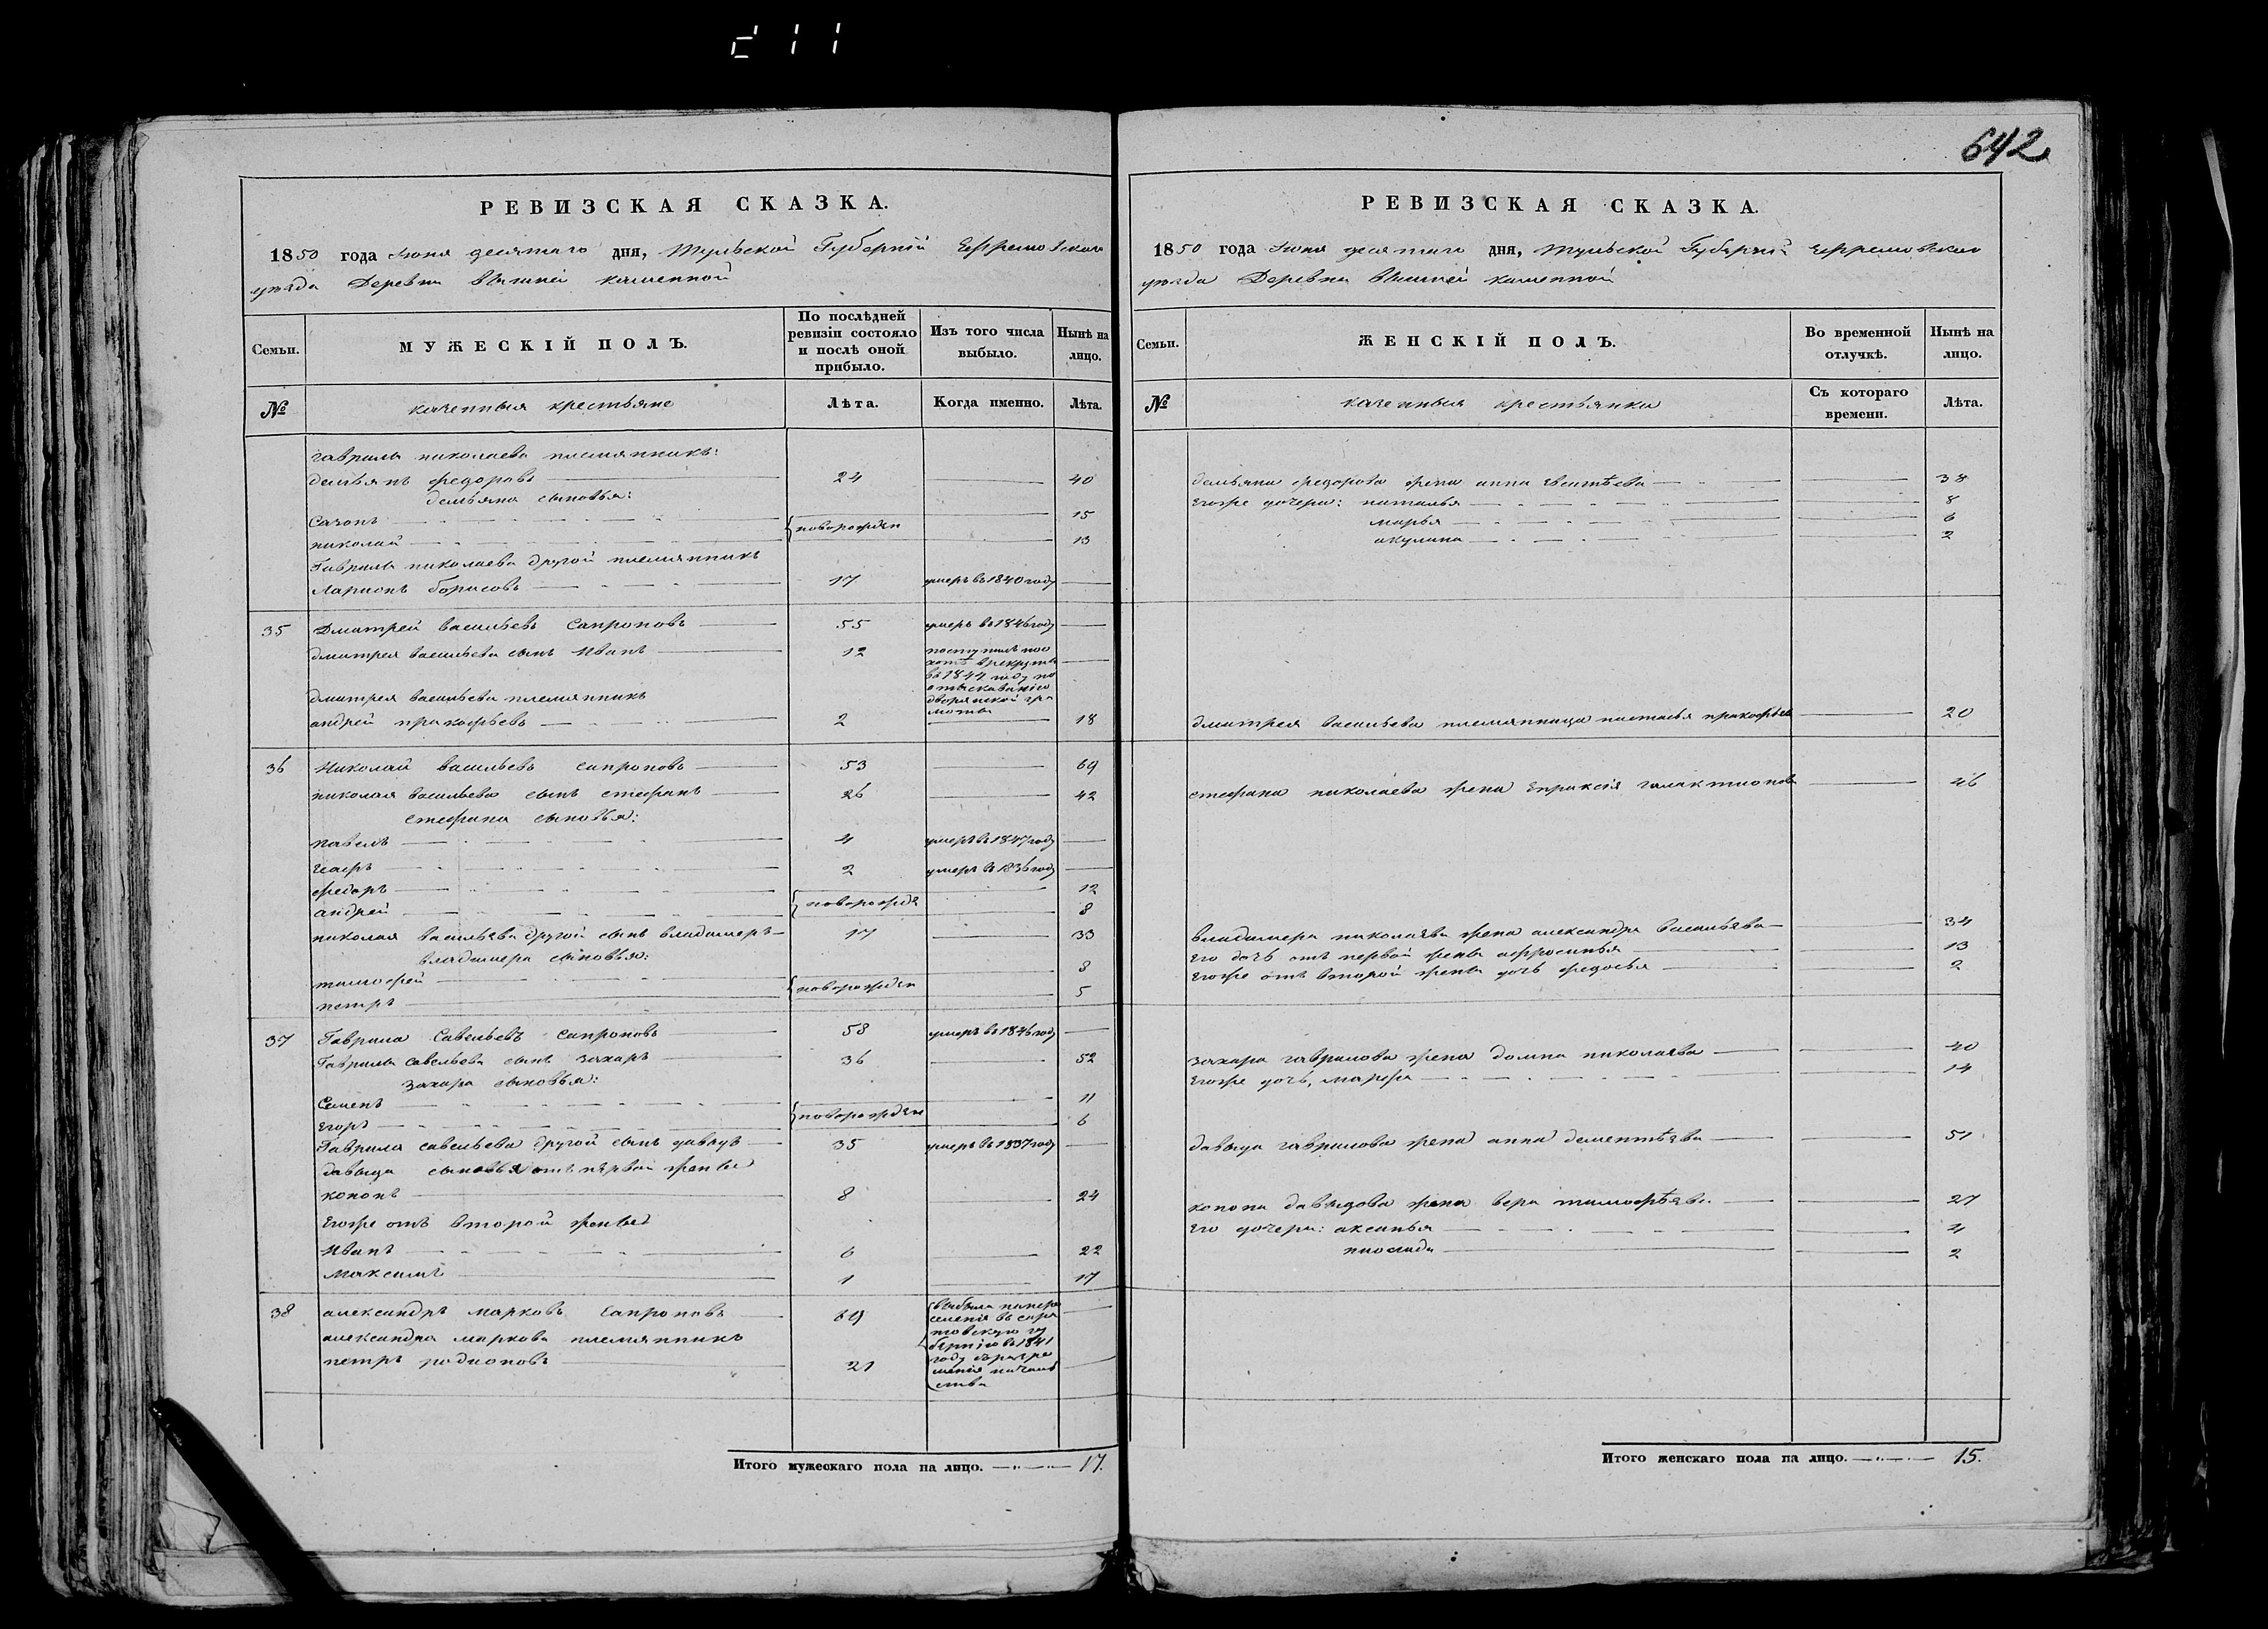 642
РЕВИЗСКАЯ СКАЗКА.
1850 года Июня десятаго дня, Тульской Губерніи Ефремовскаго
уѣзда Деревни Вышней каменной
Семьи.
МУЖЕСКІЙ ПОЛЪ.
По послѣдней ревизіи состояло и послѣ оной прибыло.
Изъ того числа выбыло.
Нынѣ на лицо.
№
казенныя крестьяне
Лѣта.
Когда именно.
Лѣта.
гаврилы николаева племянникъ:
демьянъ федоровъ 24 40
демьяна сыновья:
новорожден 15
николай 13
Гаврилы николаева другой племянникъ
Ларионъ борисовъ 17 умеръ въ 1840 году
35 Дмитрей васильевъ Сапроновъ 55 умеръ въ 1846 году
дмитрея васильева сынъ Иванъ 12 поступилъ
въ 1844 году по
отысканію
дворянской гра
моты
дмитрея васильева племянникъ
андрей пракофьевъ 2 18
36 Николай васильевъ сапроновъ 53 69
николая васильева сынъ стефанъ 26 42
стефана сыновья:
павелъ 4 умеръ въ 1847 году
2 умеръ въ 1836 году
федоръ 12
андрей новорожде 8
николая васильева другой сынъ владимеръ 17 33
владимера сыновья:
тимофей 8
петръ новорожден 5
37 Гаврила Савельевъ Сапроновъ 58 умеръ въ 1846 году
Гаврилы савельева сынъ Захаръ 36 52
Захара сыновья:
Семенъ 11
Егоръ новорожден 6
Гаврила савельева другой сынъ давыдъ 35 умеръ въ 1837 году
давыда сыновья отъ первой жены
кононъ 8 24
Егоже отъ второй жены
Иванъ 6 22
Максимъ 1 17
38 александръ марковъ Сапроновъ 69
александра маркова племянникъ
петръ родионовъ 21
выбыли на пере
селенія въ сара
товскую гу
бернію въ 1841
году съ разре
шенія началь
ства
Итого мужескаго пола на лицо. 17.
РЕВИЗСКАЯ СКАЗКА.
1850 года Июня десятаго дня, Тульской Губерніи Ефремовскаго
уѣзда Деревни Вышней каменной
Семьи.
ЖЕНСКІЙ ПОЛЪ.
Во временной отлучкѣ.
Нынѣ на лицо.
№
казенныя крестьянки
Съ котораго времени.
Лѣта.
демьяна федорова жена анна 38
Егоже дочери: наталья 8
марья 6
акулина 2
дмитрея васильева племянница настасья пракофьева 20
стефана николаева жена Епраксія галактионова 46
владимера николаева жена александра васильева 34
Его дочь отъ первой жены афросинья 13
Егоже отъ второй жены дочь федосья 2
захара гаврилова жена домна николаева 40
Егоже дочь, марфа 14
давыда гаврилова жена анна дементьева 51
конона давыдова жена вера тимофѣева 27
Его дочери: аксинья 4
2
Итого женскаго пола на лицо. 15.